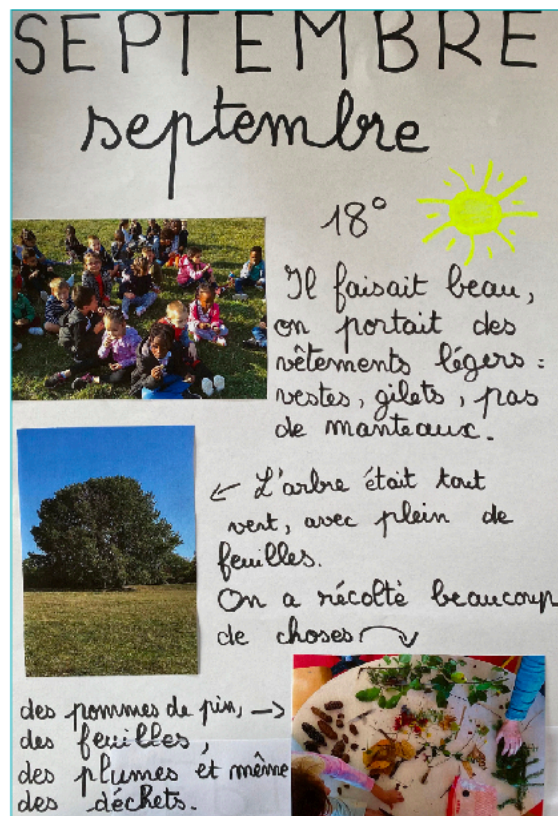 SEPTEMBRE
septembre
18°
Il faisait beau,
on portait des
vêtements légers :
vestes, gilets, pas
de manteaux.
← L'arbre était tout
vert, avec plein de
feuilles.
On a récolté beaucoup
de choses
des pommes de pin, →
des feuilles,
des plumes et même
des déchets.